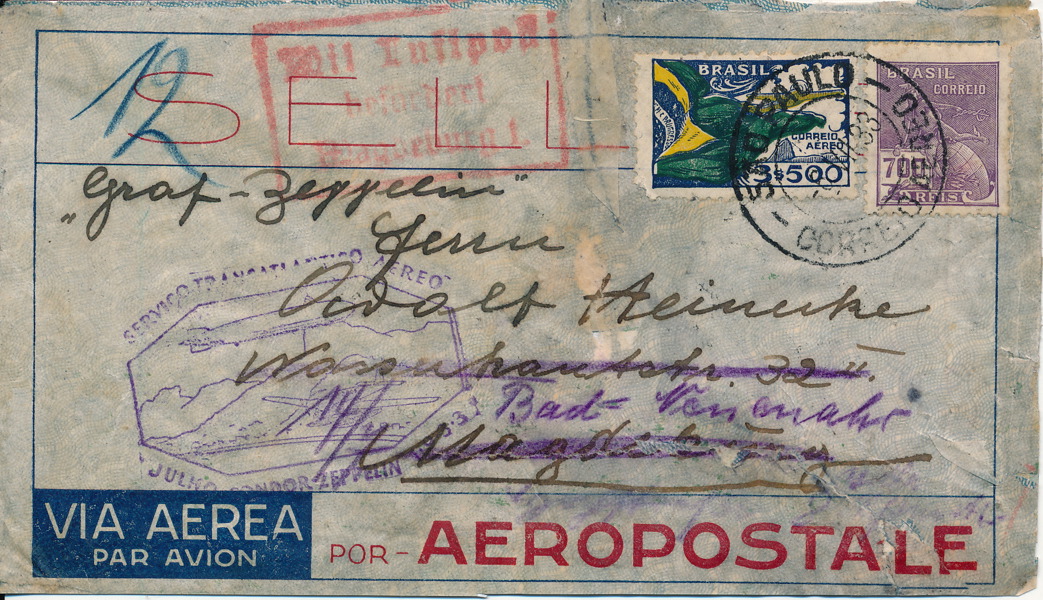 12
SELL
Mit Luftpost
befördert
BRASIL
CORREIO
AEREO
3$500
BRASIL
CORREIO
700
REIS
SÃO PAULO
CORREIO AEREO
„Graf-Zeppelin“
Herrn
Adolf Heinecke
32 II.
Bad-Neuenahr
Magdeburg
SERVIÇO TRANSATLANTICO AEREO
JULHO CONDOR-ZEPPELIN
VIA AEREA
PAR AVION
POR - AEROPOSTALE